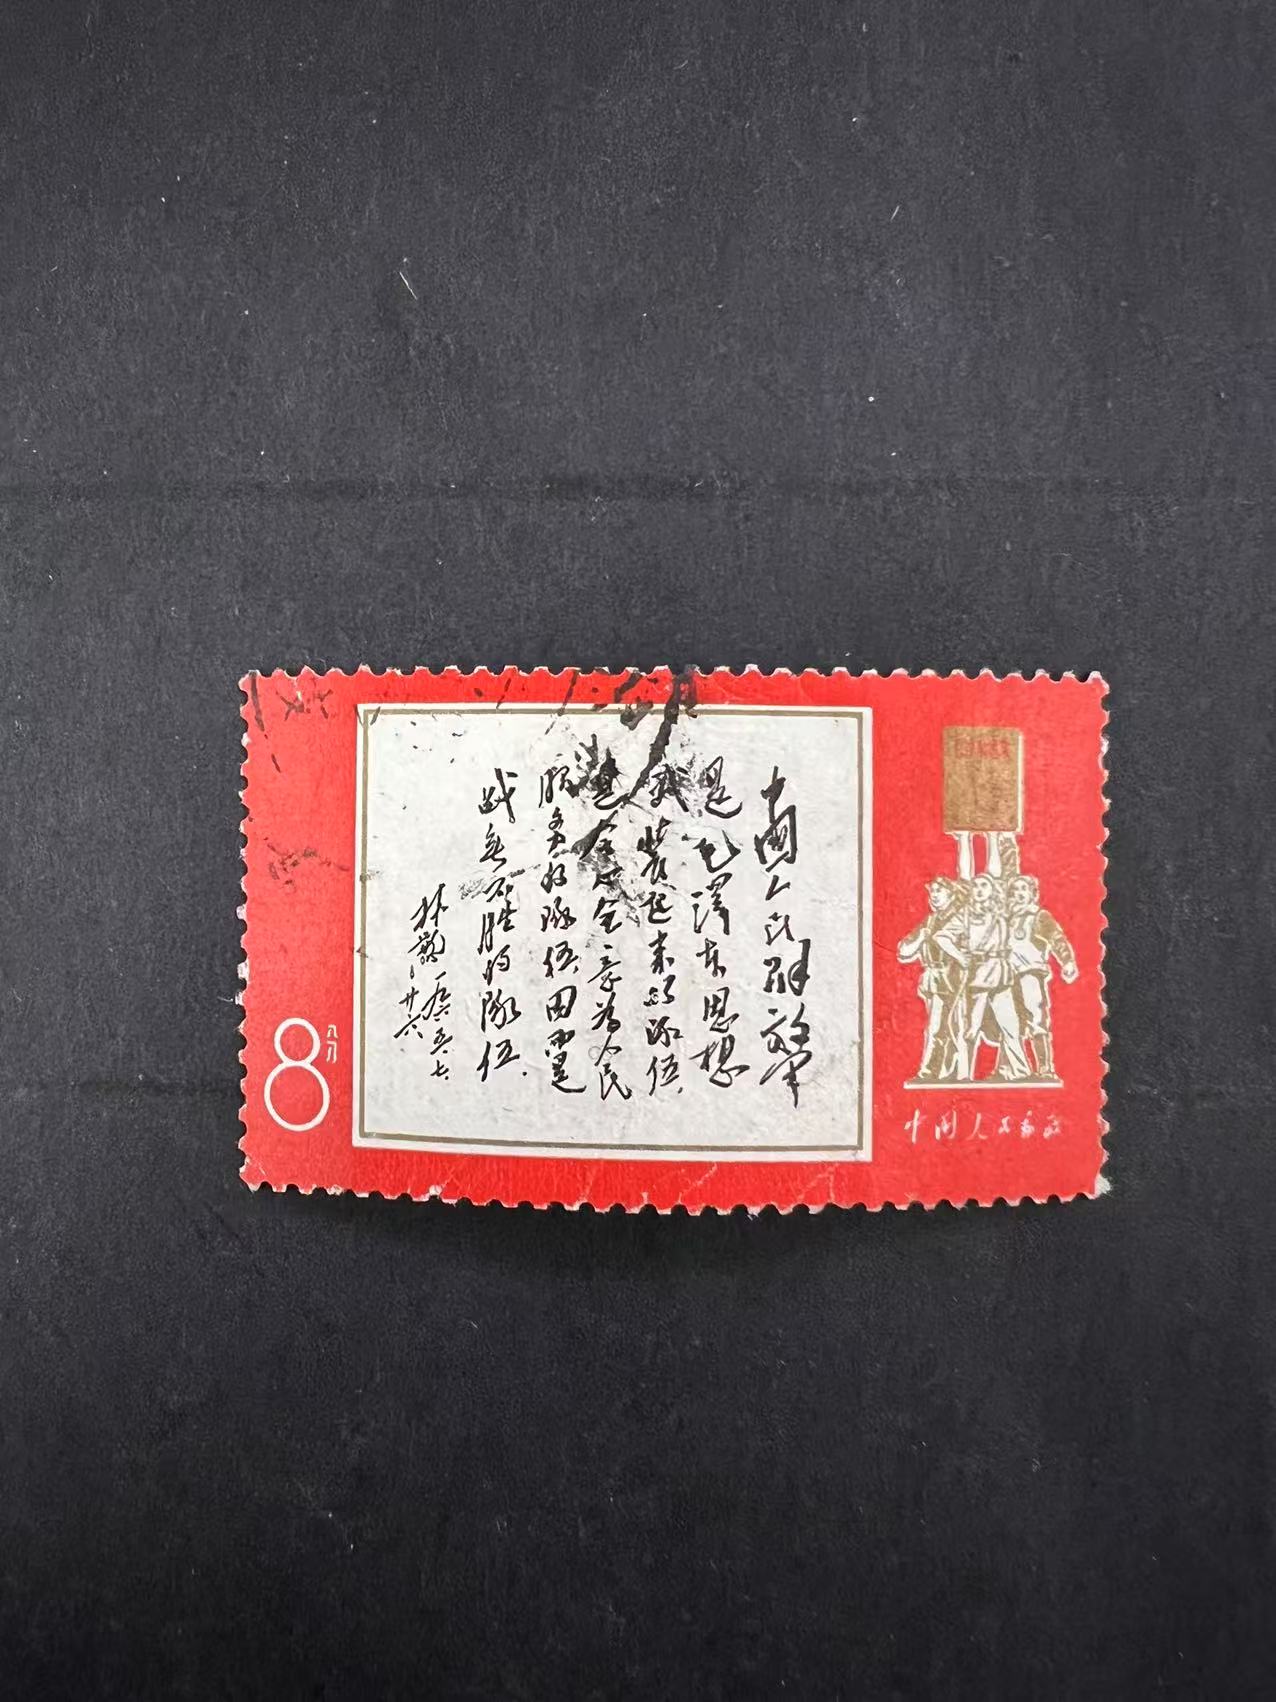 中國人民解放军
是毛澤东思想
武裝起来的队伍、
是全心全意为人民
服务的队伍,因而是
战無不胜的队伍.
林彪 一九六五.七.
廿六
8 八分
中国人民邮政